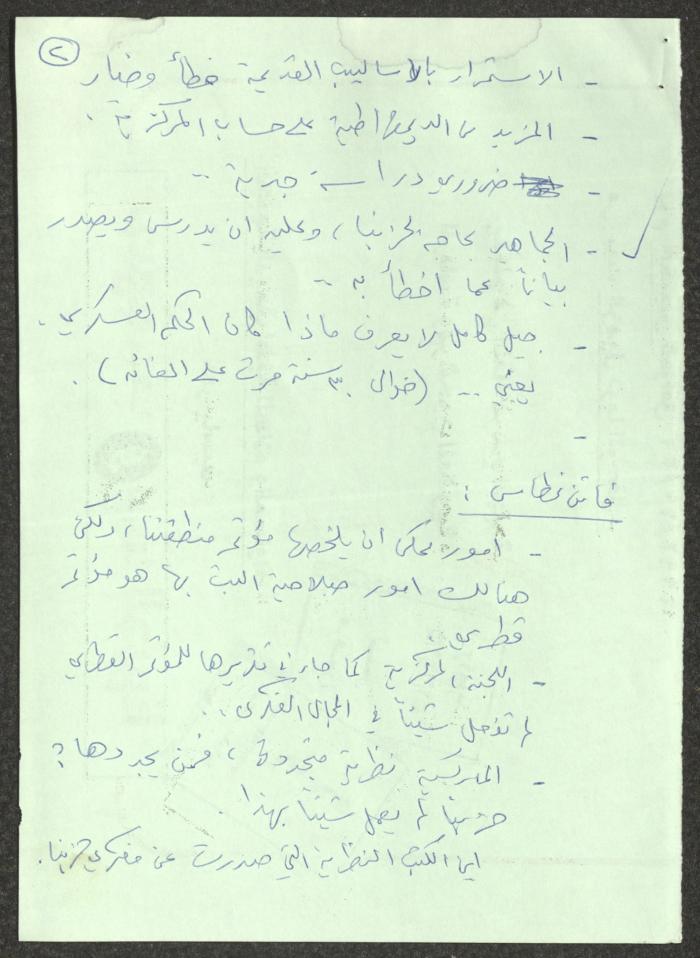 ٢
- الاستمرار بالاساليب القديمة خطأ وضار
- المزيد من الديمقراطية على حساب المركزية.
- ضروري دراسة جدية ..
- الجماهير بحاجة لحزبنا، وعليه ان يدرس ويصدر
بياناً عما اخطأ به ..
- جيل كامل لا يعرف ماذا كان الحكم العسكري.
يعني .. (حوالي ٣٠ سنة مرت على الغائه).
-
فاتن غطاس :
- امور ممكن ان يلخصها مؤتمر منطقتنا، ولكن
هنالك امور صلاحية البت بها هو مؤتمر
قطري.
- اللجنة المركزية كما جاء في تقريرها للمؤتمر القطري
لم تفعل شيئاً في المجال الفكري ..
- الماركسية نظرية متجددة، فمن يجددها؟
حزبنا لم يعمل شيئاً بهذا.
اين الكتب النظرية التي صدرت عن مفكري حزبنا.